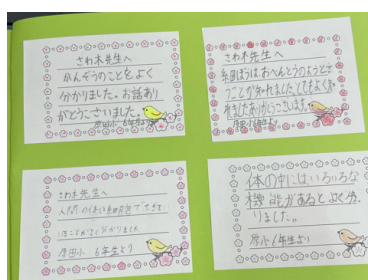 さわ木先生へ
かんぞうのことをよく
分かりました。お話あり
がとうございました。
原田小6年生より
さわ木先生へ
細ぼうは、おべんとうのような
ことが分かりました。とてもよく分
かりましたありがとうございます。
原田小6年生より
さわ木先生へ
人間の体は細胞でできて
いることがよく分かりました
原田小 6年生より
体の中にはいろいろな
機能があるとよく分か
りました。
原小6年生より